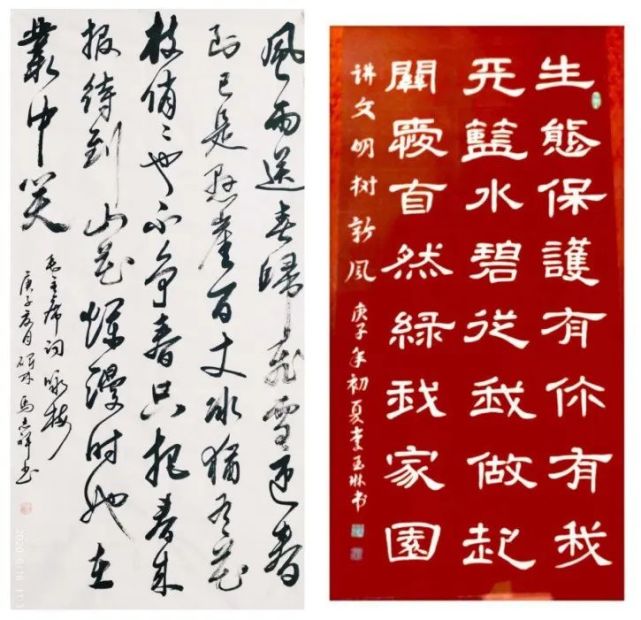 風雨送春歸飛雪迎春
到已是悬崖百丈冰猶有花
枝俏〻也不争春只把春来
报待到山花爛漫时她在
叢中笑
毛主席词咏梅
庚子夏月 马志祥书
生態保護有你有我
天藍水碧從我做起
關愛自然綠我家園
讲文明树新风 庚子年初夏李玉琳书